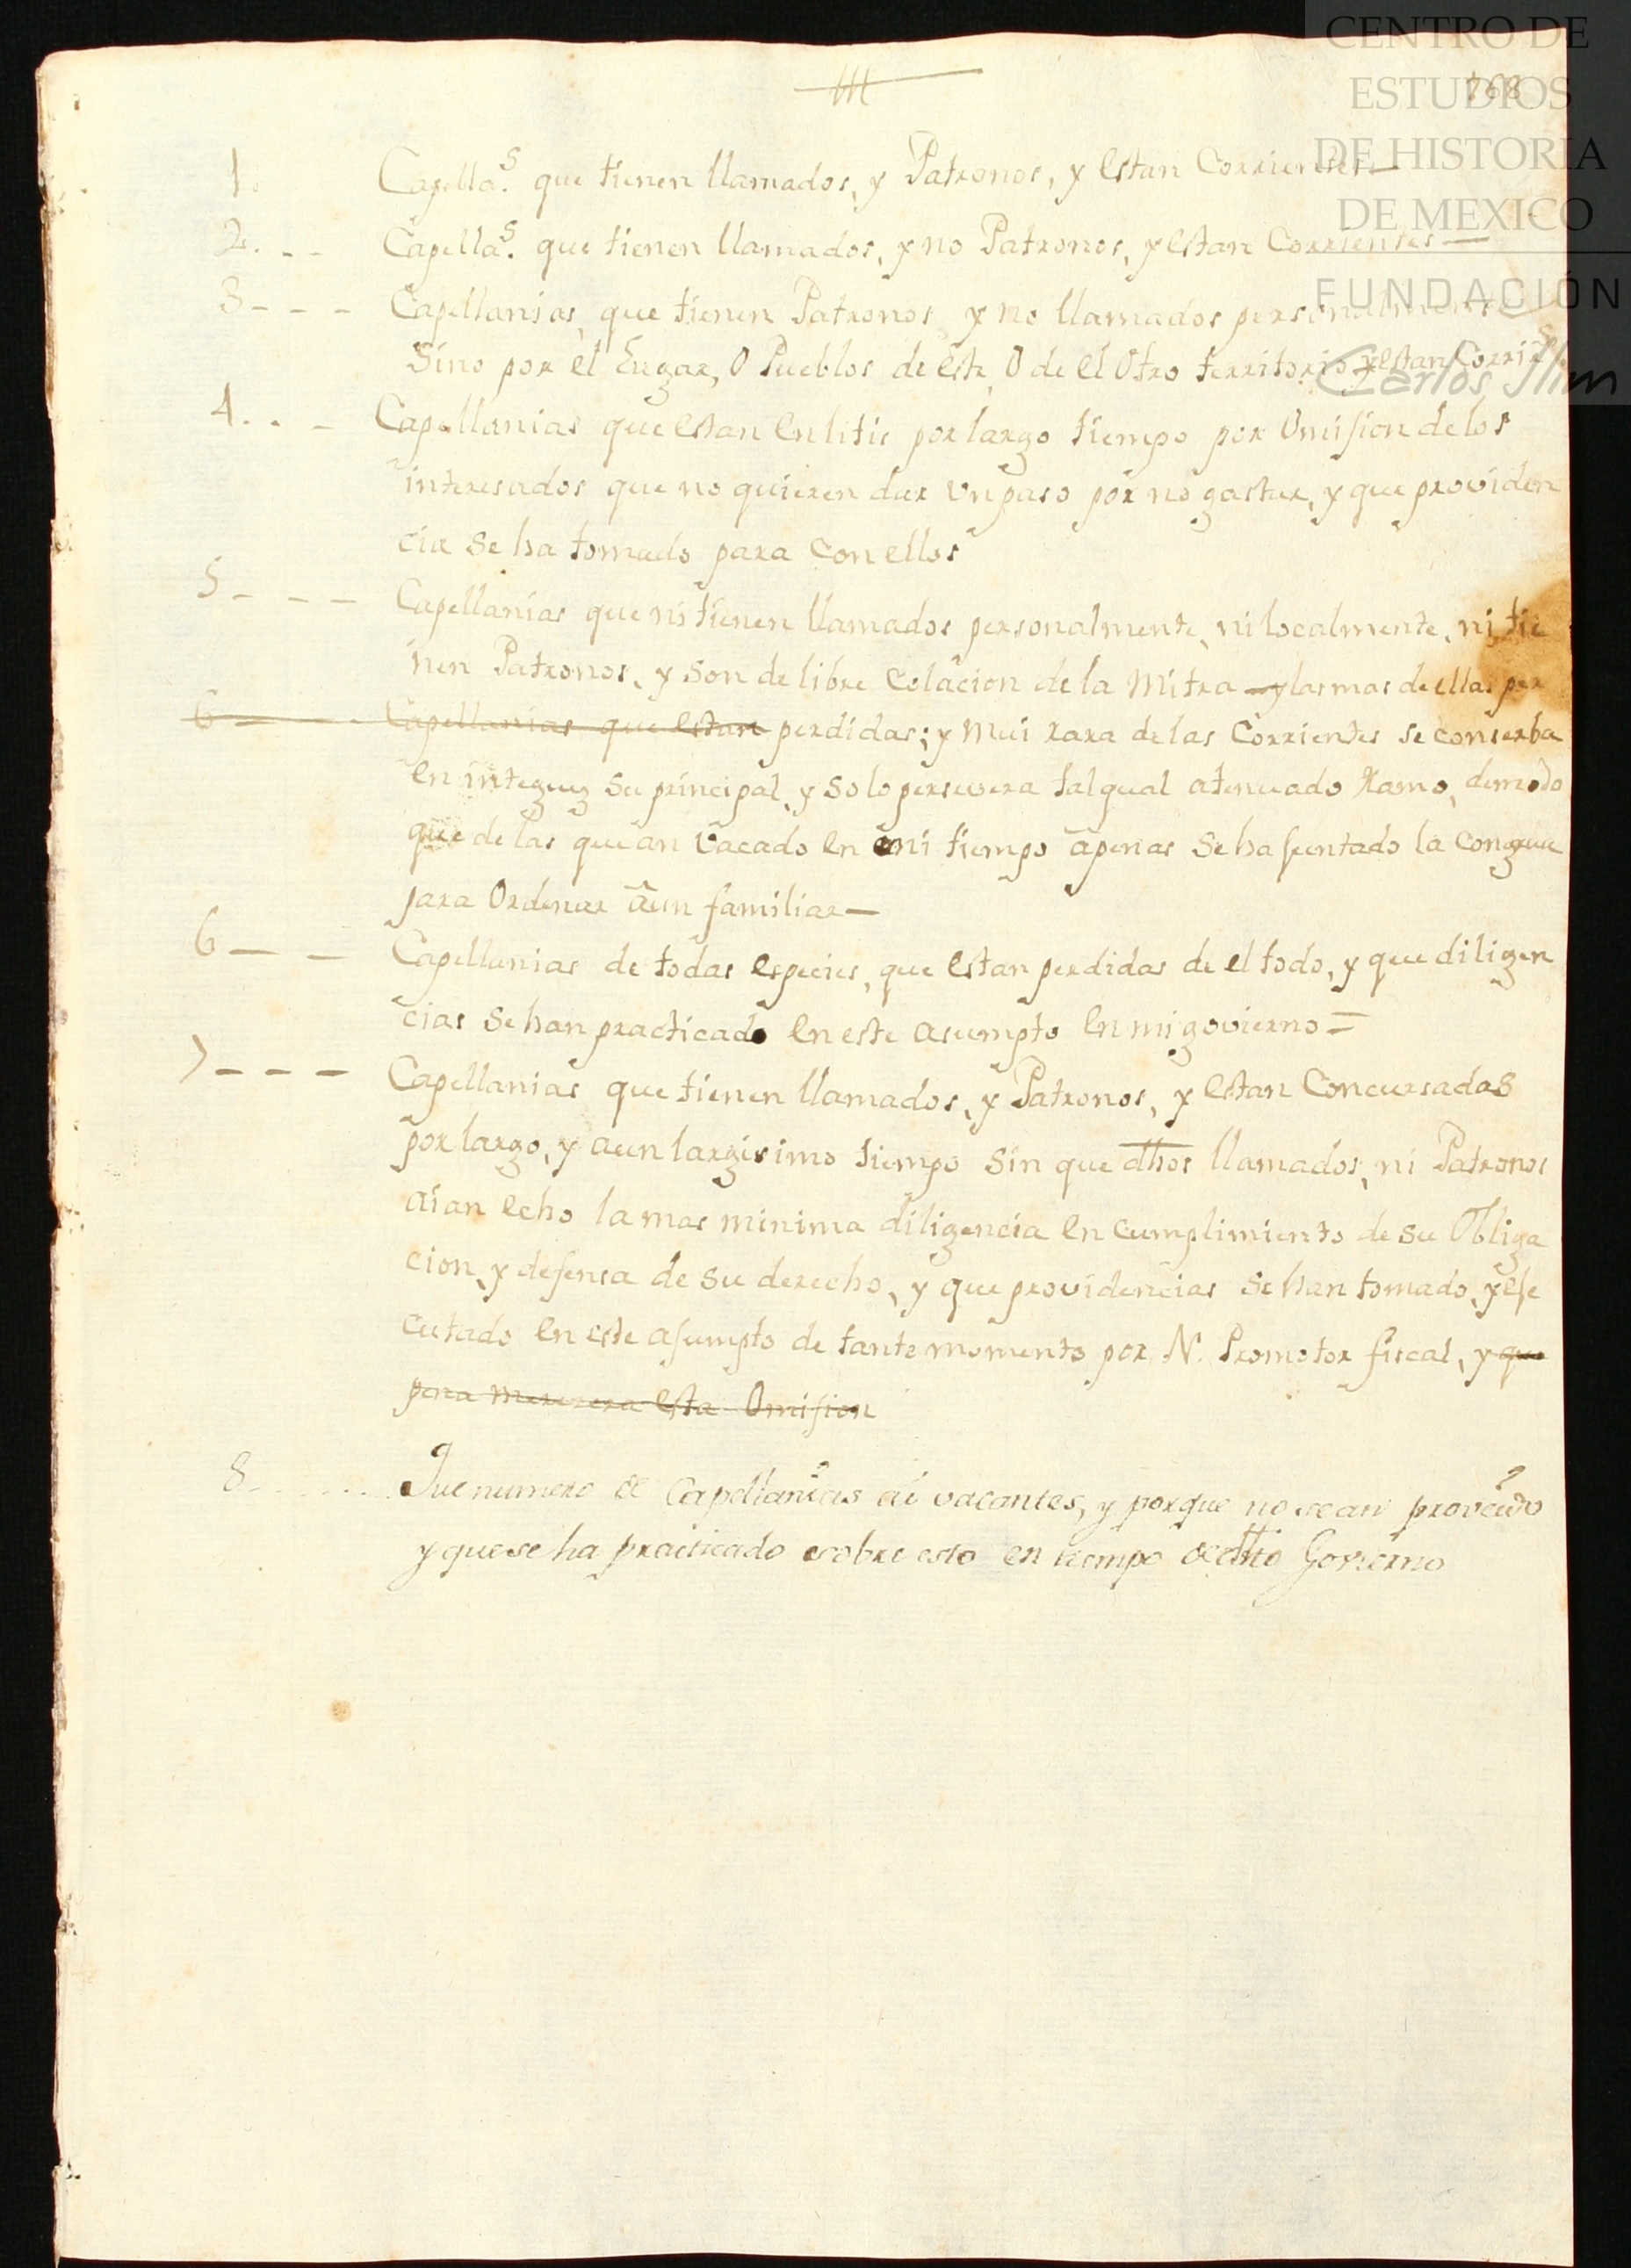 CENTRO DE
ESTUDIOS
DE HISTORIA
DE MEXICO
FUNDACIÓN
Carlos Slim
168
1. Capellas. que tienen llamados, y Patronos, y estan Corrientes—
2. - - Capellas. que tienen llamados, y no Patronos, y estan Corrientes—
3 - - - Capellanias, que tienen Patronos y no llamados personalmente
Sino por el Lugar, O Pueblos de este, O de el Otro territorio, y estan Corrites
4. . - Capellanias que estan en litis por largo tiempo por Omision de los
interesados que no quieren dar un paso por no gastar, y que providen
cia se ha tomado para con ellos
5 - - - Capellanias que ni tienen llamados personalmente, ni localmente, ni tie
nen Patronos, y son de libre colacion de la Mitra — y las mas de ellas per
6 - - - Capellanias que estan perdidas; y mui rara de las Corrientes se conserba
en integra su principal, y solo persevera tal qual atenuado Ramo, de modo
que de las que an vacado en mi tiempo apenas se ha juntado la congrua
para Ordenar a un familiar—
6 - - Capellanias de todas especies, que estan perdidas de el todo, y que diligen
cias se han practicado en este asumpto en mi govierno=
7 - - - Capellanias que tienen llamados, y Patronos, y estan Concursadas
por largo, y aun largisimo tiempo sin que dhos llamados, ni Patronos
aian echo la mas minima diligencia en cumplimiento de su Obliga
cion, y defensa de su derecho, y que providencias se han tomado, y eje
cutado en este asumpto de tanto momento por N. Promotor fiscal, y que
pena merezera esta Omision
8 . . . . . Que numero de Capellanias ai vacantes, y porque no se an proveido
y que se ha practicado sobre esto en tiempo de dho Govierno